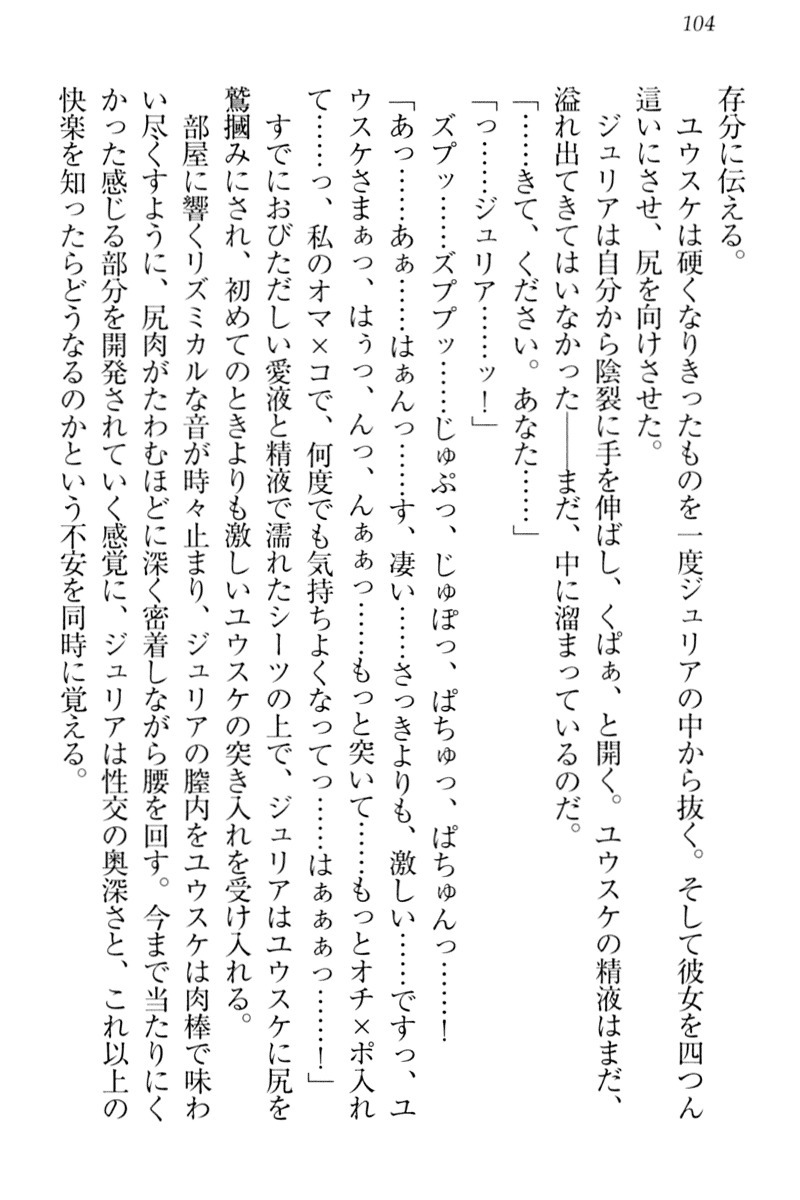 104
存分に伝える。
　ユウスケは硬くなりきったものを一度ジュリアの中から抜く。そして彼女を四つん
這いにさせ、尻を向けさせた。
　ジュリアは自分から陰裂に手を伸ばし、くぱぁ、と開く。ユウスケの精液はまだ、
溢れ出てきてはいなかった――まだ、中に溜まっているのだ。
「……きて、ください。あなた……」
「っ……ジュリア……ッ！」
　ズプッ……ズププッ……じゅぷっ、じゅぽっ、ぱちゅっ、ぱちゅんっ……！
「あっ……あぁ……はぁんっ……す、凄い……さっきよりも、激しい……ですっ、ユ
ウスケさまぁっ、はぅっ、んっ、んぁぁっ……もっと突いて……もっとオチ×ポ入れ
て……っ、私のオマ×コで、何度でも気持ちよくなってっ……はぁぁぁっ……！」
　すでにおびただしい愛液と精液で濡れたシーツの上で、ジュリアはユウスケに尻を
鷲摑みにされ、初めてのときよりも激しいユウスケの突き入れを受け入れる。
　部屋に響くリズミカルな音が時々止まり、ジュリアの膣内をユウスケは肉棒で味わ
い尽くすように、尻肉がたわむほどに深く密着しながら腰を回す。今まで当たりにく
かった感じる部分を開発されていく感覚に、ジュリアは性交の奥深さと、これ以上の
快楽を知ったらどうなるのかという不安を同時に覚える。